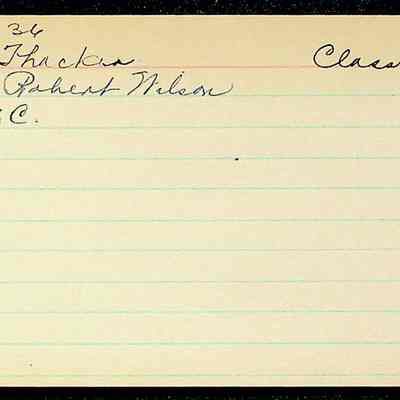 36
Thacker Class
Robert Wilson
C.